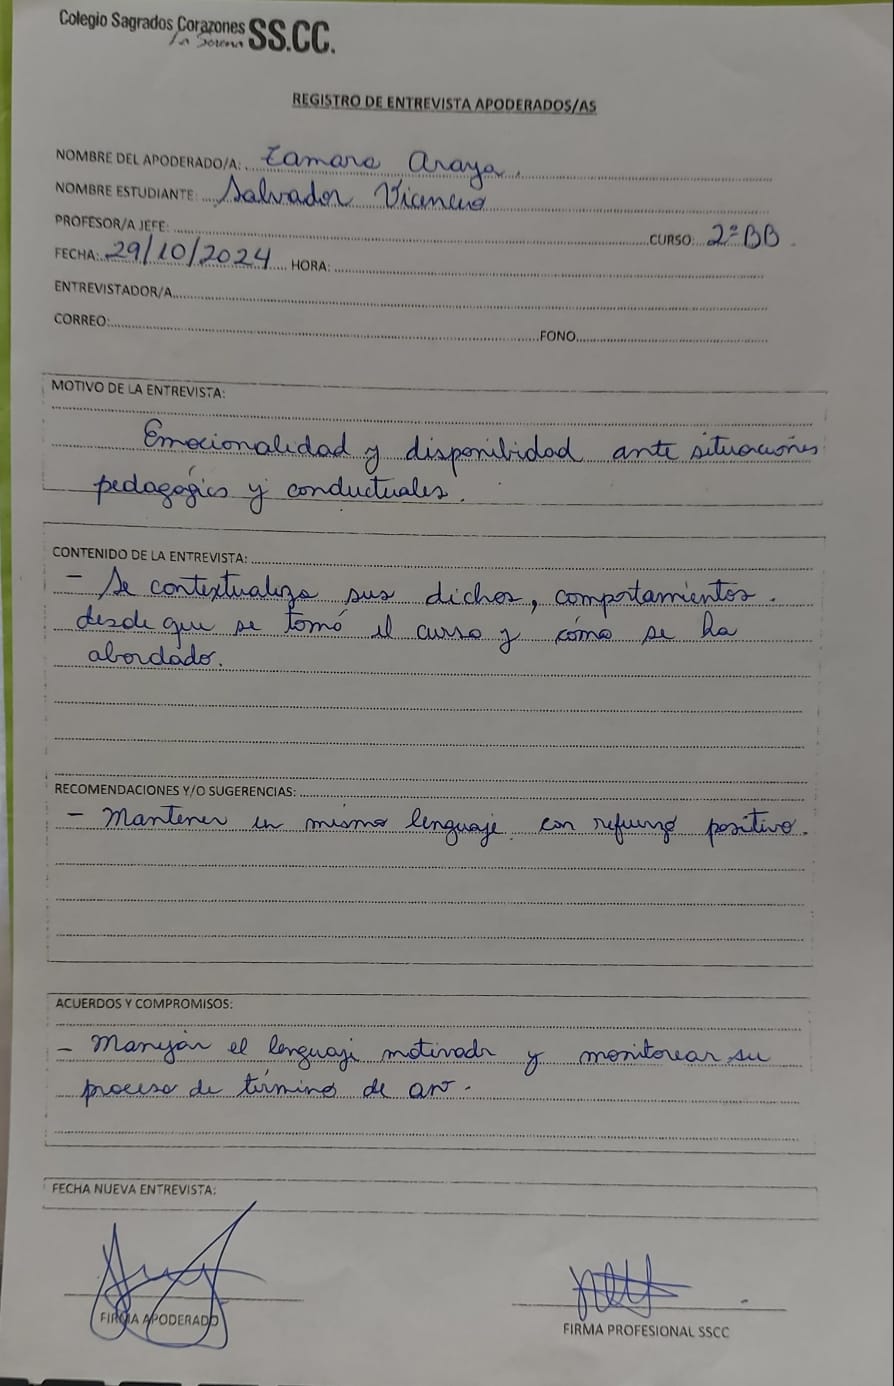 Colegio Sagrados Corazones SS.CC.
La Serena
REGISTRO DE ENTREVISTA APODERADOS/AS
NOMBRE DEL APODERADO/A: Tamara Araya.
NOMBRE ESTUDIANTE: Salvador Vicencio
PROFESOR/A JEFE: CURSO: 2ºBB.
FECHA: 29/10/2024 HORA:
ENTREVISTADOR/A
CORREO: FONO
MOTIVO DE LA ENTREVISTA:
Emocionalidad y disponibidad ante situaciones
pedagógico y conductuales.
CONTENIDO DE LA ENTREVISTA:
- Se contextualiza sus dichos, comportamientos.
desde que se tomó el curso y cómo se ha
abordado.
RECOMENDACIONES Y/O SUGERENCIAS:
- Mantener un mismo lenguaje con refuerzo positivo.
ACUERDOS Y COMPROMISOS:
- Manejar el lenguaje motivador y monitorear su
proceso de término de año.
FECHA NUEVA ENTREVISTA:
FIRMA APODERADO
FIRMA PROFESIONAL SSCC